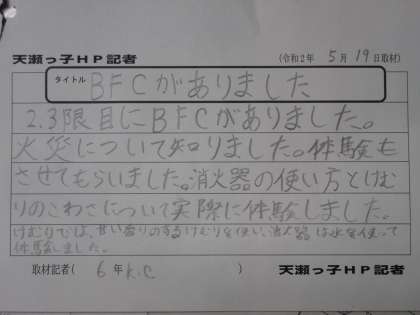 天瀬っ子HP記者 (令和2年 5月19日取材)
タイトル BFCがありました
2.3限目にBFCがありました。
火災について知りました。体験も
させてもらいました。消火器の使い方とけむ
りのこわさについて実際に体験しました。
けむりでは、甘い香りのするけむりを使い、消火器は水を使って
体験しました。
取材記者( 6年 K.C ) 天瀬っ子HP記者